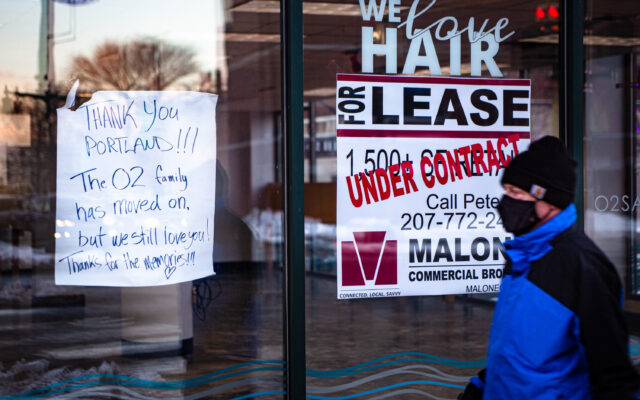 WE love
HAIR
THANK YOU
PORTLAND!!!
The O2 family
has moved on,
but we still love you!
Thanks for the memories!!! ♡
FOR LEASE
1,500+ SF
UNDER CONTRACT
Call Pete
207-772-2
MALON
COMMERCIAL BRO
CONNECTED. LOCAL. SAVVY
MALONE
O2SA